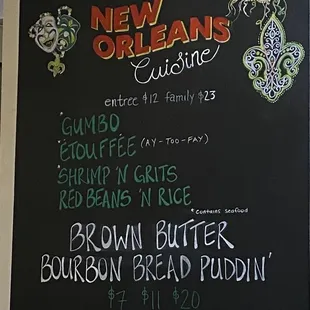 NEW
ORLEANS
Cuisine
entree $12 family $23
*GUMBO
*ÉTOUFFÉE (AY-TOO-FAY)
*SHRIMP 'N GRITS
RED BEANS 'N RICE
*Contains seafood
BROWN BUTTER
BOURBON BREAD PUDDIN'
$7 $11 $20